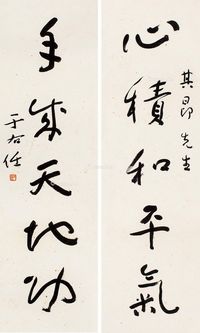 心積和平氣
其昂先生
手成天地功
于右任